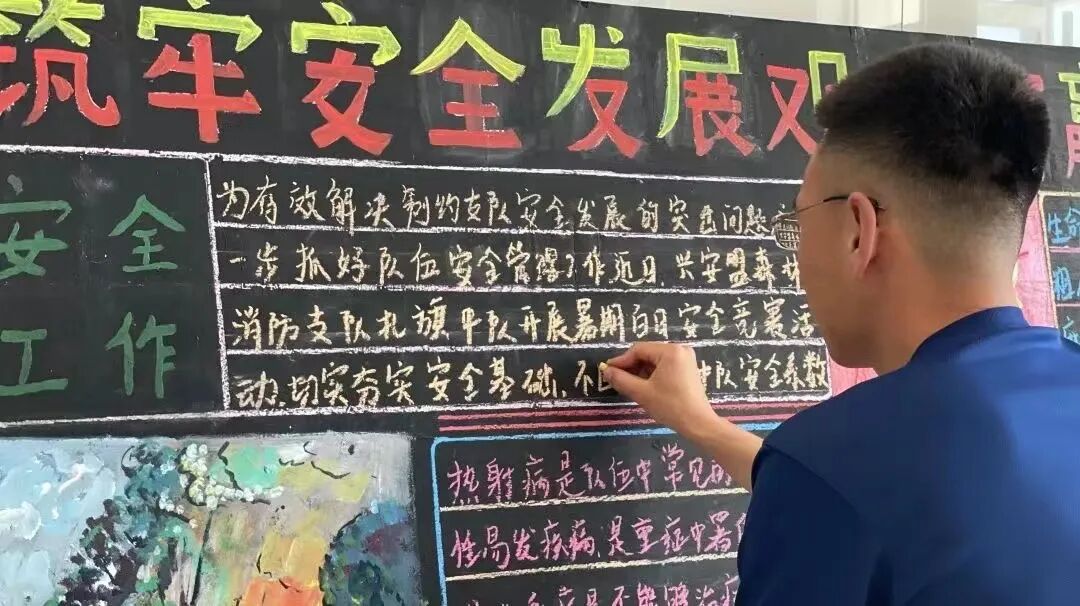 筑牢安全发展观
安全
工作
为有效解决制约支队安全发展的突出问题
一步抓好队伍安全管理工作近日,兴安盟森林
消防支队扎旗中队开展暑期百日安全竞赛活
动,切实夯实安全基础,不 中队安全系数
生命
热射病是队伍中常见的
性易发疾病,是重症中暑